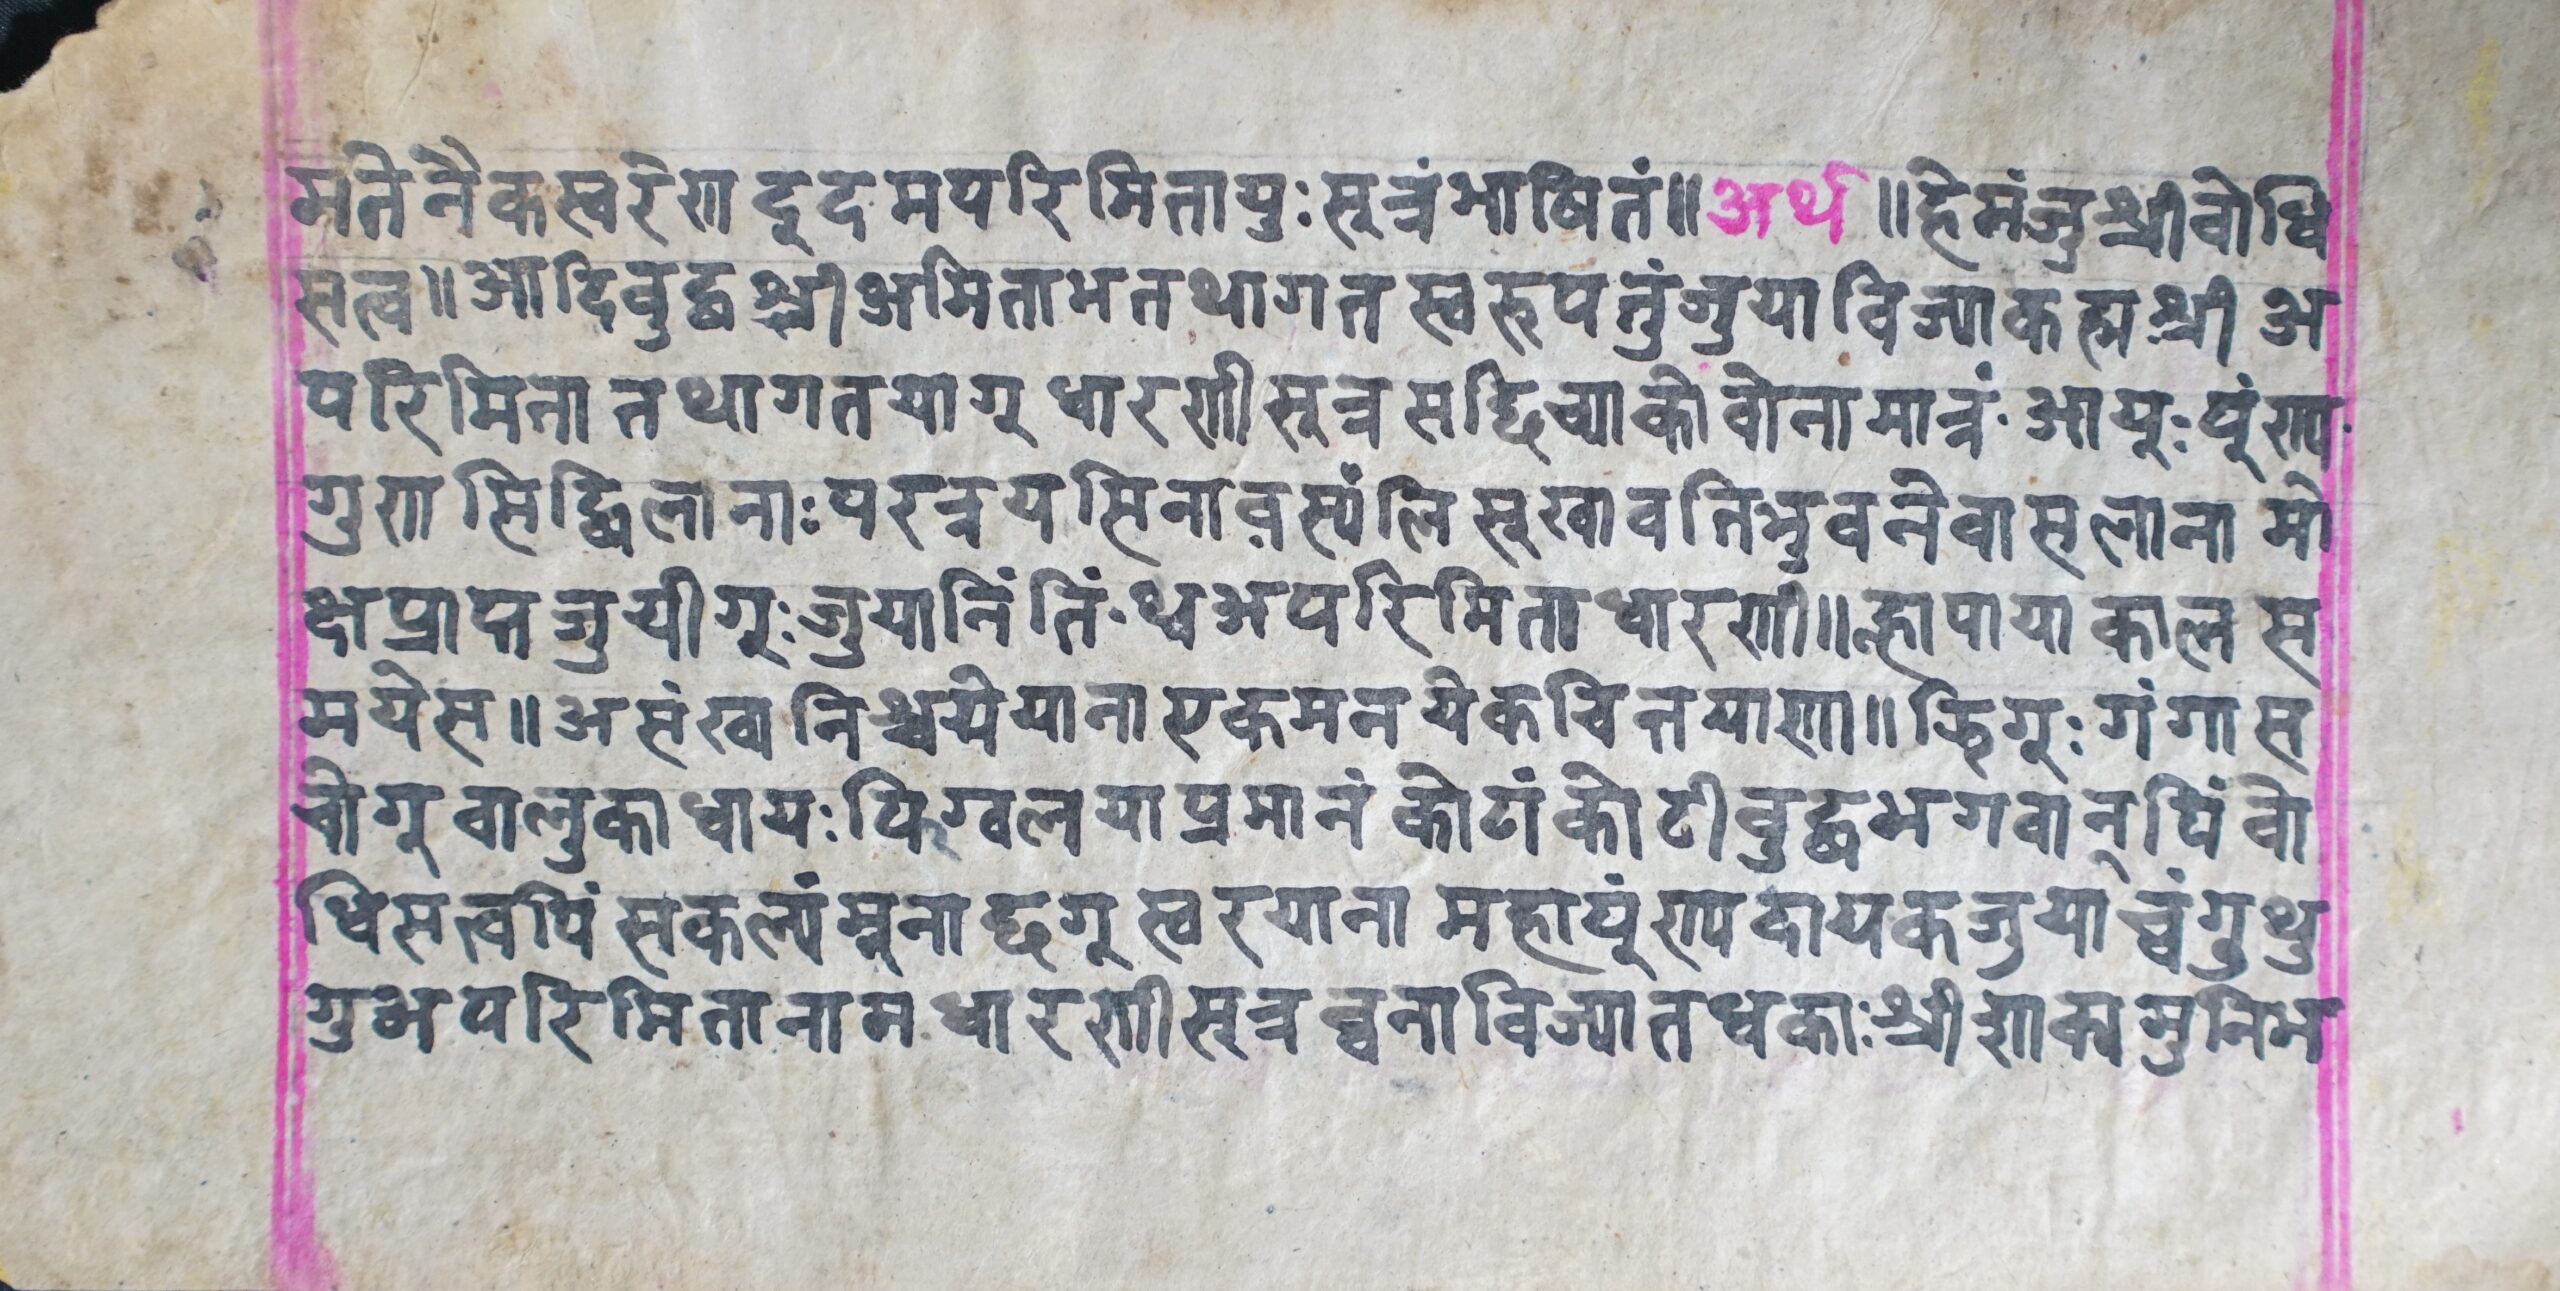 मतेनैकस्वरेण दूदमपरिमितायुः सूत्रंभाषितं॥ अर्थ ॥हेमंजुश्रीवोधि
सत्व॥आदिवुद्धश्रीअमिताभतथागत स्वरूपतुंजुयाविज्याकह्म श्री अ
परिमिता तथागतयागू धारणीसूत्र सद्धिच्याको वोनामात्रं आयूः पूंराप
गुण सिद्धिलानाः परत्रयसिनावस्यंलि सूखावतिभुवनेवासलाना मो
क्षप्राप्तजुयीगूः जुयानिंतिं थ्वअपरिमिताधारणी॥ह्लापाया कालस
मयेस॥असंख्यानिश्चययेयाना एकमनयेकचित्तयाणा॥झिगूः गंगास
चोगू वालुकाधायः फिग्वलयाप्रमानं कोटांकोटीवुद्धभगवान्पिं वो
धिसत्वपिं सकल्यंम्नूनाछगू स्वरयाना महापूंरापदायकजुयाच्वंगुथु
गुअपरिमितानाम धारणीसूत्र ब्वनाविज्यातधकाः श्रीशाक्यमुनिभ